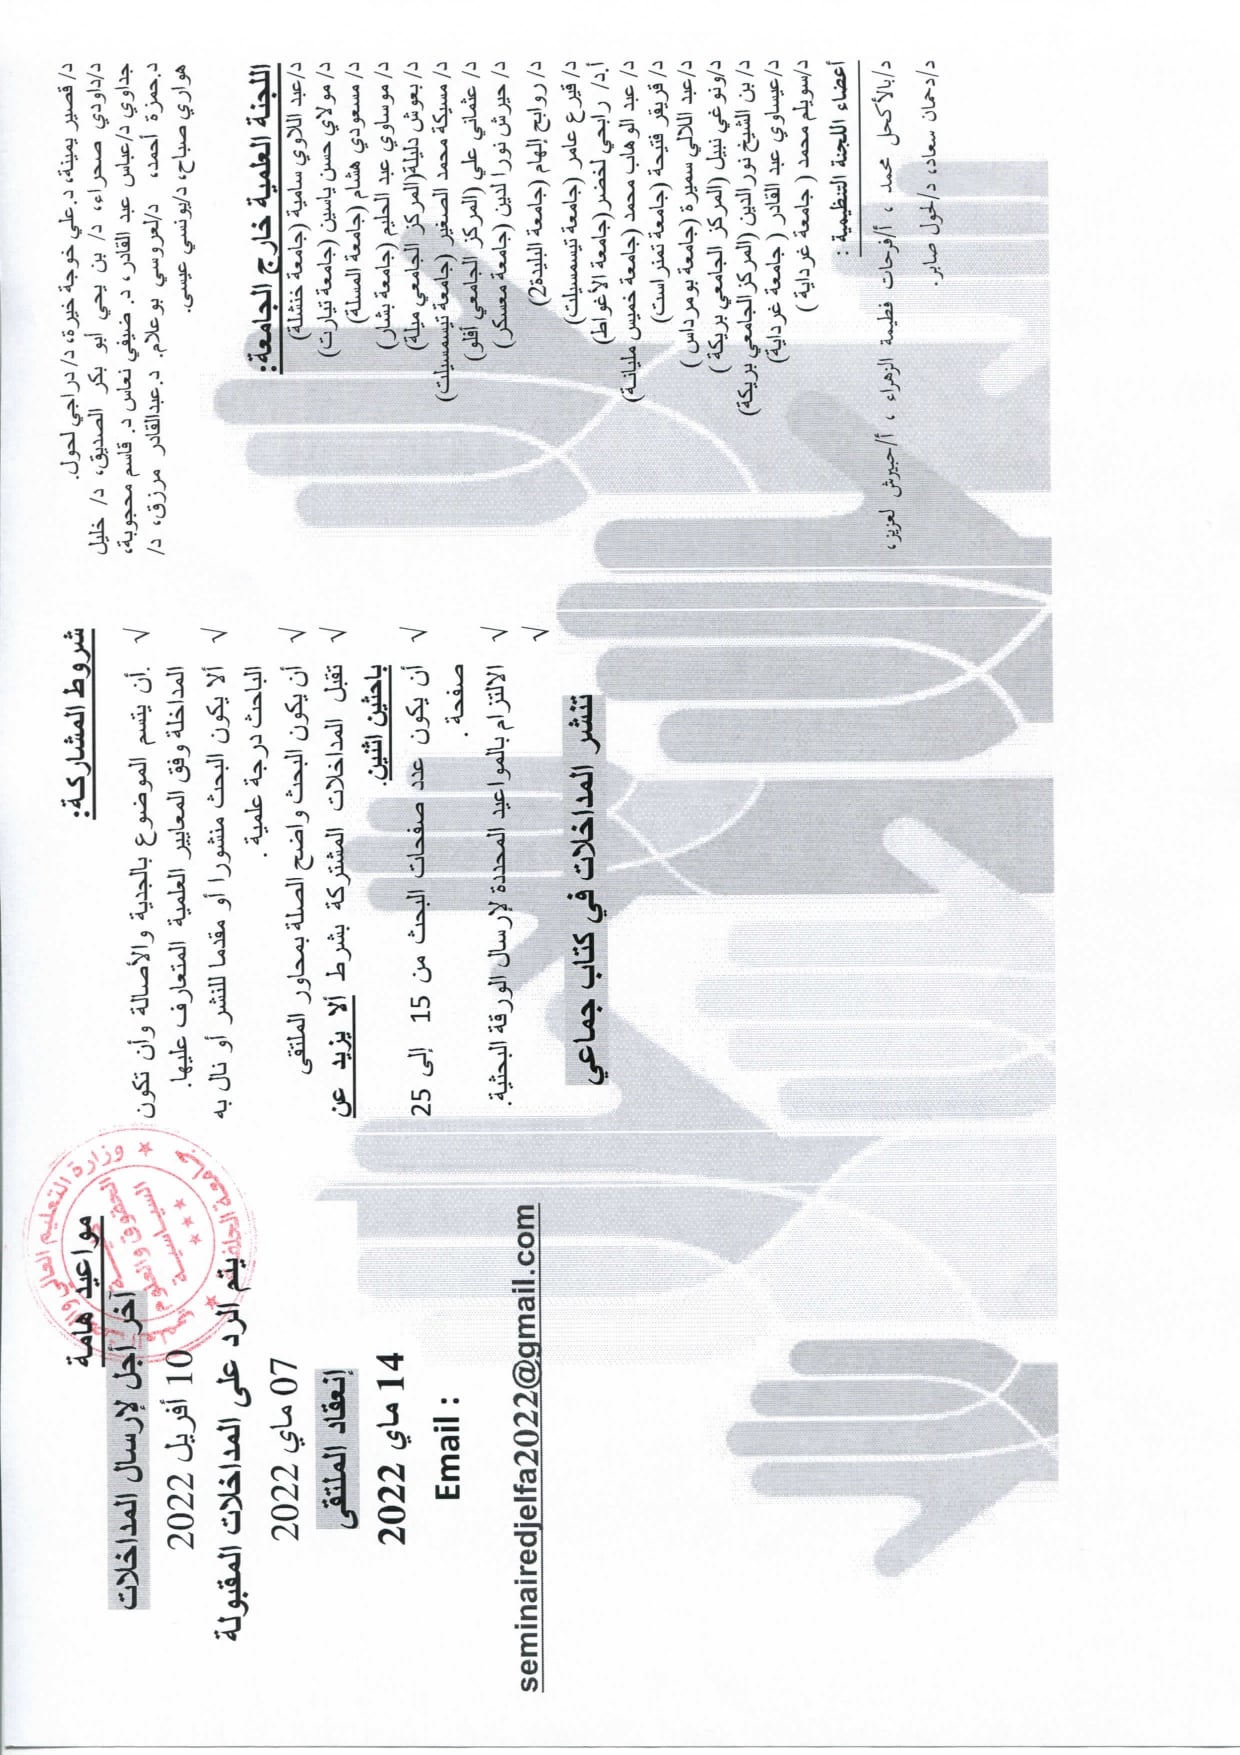 د/ قصير يمينة، د.علي خوجة خيرة، د/ دراجي لحول.
د/داودي صحراء، د/ بن يحي أبو بكر الصديق، د/ خليل
جداوي د/عباس عبد القادر، د. ضيفي نعاس د. قاسم محجوبة،
د.حمزة أحمد، د/لعروسي بوعلام. د.عبدالقادر مرزق، د/
هواري صباح، د/يونسي عيسى.
اللجنة العلمية خارج الجامعة:
د/عبد اللاوي سامية (جامعة خنشلة)
د/ مولاي حسن ياسين (جامعة تيارت)
د/ مسعودي هشام (جامعة المسلة)
د/ موساوي عبد الحليم (جامعة بشار)
د/ بعوش دليلة(المركز الجامعي ميلة)
د/ مسيكة محمد الصغير (جامعة تيسمسيلت)
د/ عثماني علي (المركز الجامعي أفلو)
د/ حيرش نورا لدين (جامعة معسكر)
د/ روابح إلهام (جامعة البليدة2)
د/ قيرع عامر (جامعة تيسمسيلت)
أ.د/ رابحي لخضر(جامعة الأغواط)
د/ عبد الوهاب محمد (جامعة خميس مليانة)
د/ فريقر فتيحة (جامعة تمنراست)
د/عبد اللالي سميرة (جامعة بومرداس )
د/ونوغي نبيل (المركز الجامعي بريكة )
د/ بن الشيخ نورالدين (المركزالجامعي بريكة)
د/عيساوي عبد القادر ( جامعة غرداية)
د/سويلم محمد ( جامعة غرداية )
أعضاء اللجنة التنظيمية :
د/بالأكحل محمد ، أ/فرحات فطيمة الزهراء ، أ/حبيرش لعزيز،
د/دحمان سعاد، د/لحول صابر.
شروط المشاركة:
√ .أن يتسم الموضوع بالجدية والأصالة وأن تكون
المداخلة وفق المعايير العلمية المتعارف عليها.
√ ألا يكون البحث منشورا أو مقدما للنشر أو نال به
الباحث درجة علمية .
√ أن يكون البحث واضح الصلة بمحاور الملتقى
√ تقبل المداخلات المشتركة بشرط ألا يزيد عن
باحثين اثنين.
√ أن يكون عدد صفحات البحث من 15 إلى 25
صفحة .
√ الالتزام بالمواعيد المحددة لإرسال الورقة البحثية.
√
تنشر المداخلات في كتاب جماعي
مواعيد هامة
آخر أجل لإرسال المداخلات
10 أفريل 2022
يتم الرد على المداخلات المقبولة
07 ماي 2022
إنعقاد الملتقى
14 ماي 2022
Email :
seminairedjelfa2022@gmail.com
وزارة التعليم العالي
الحقوق والعلوم
السياسية